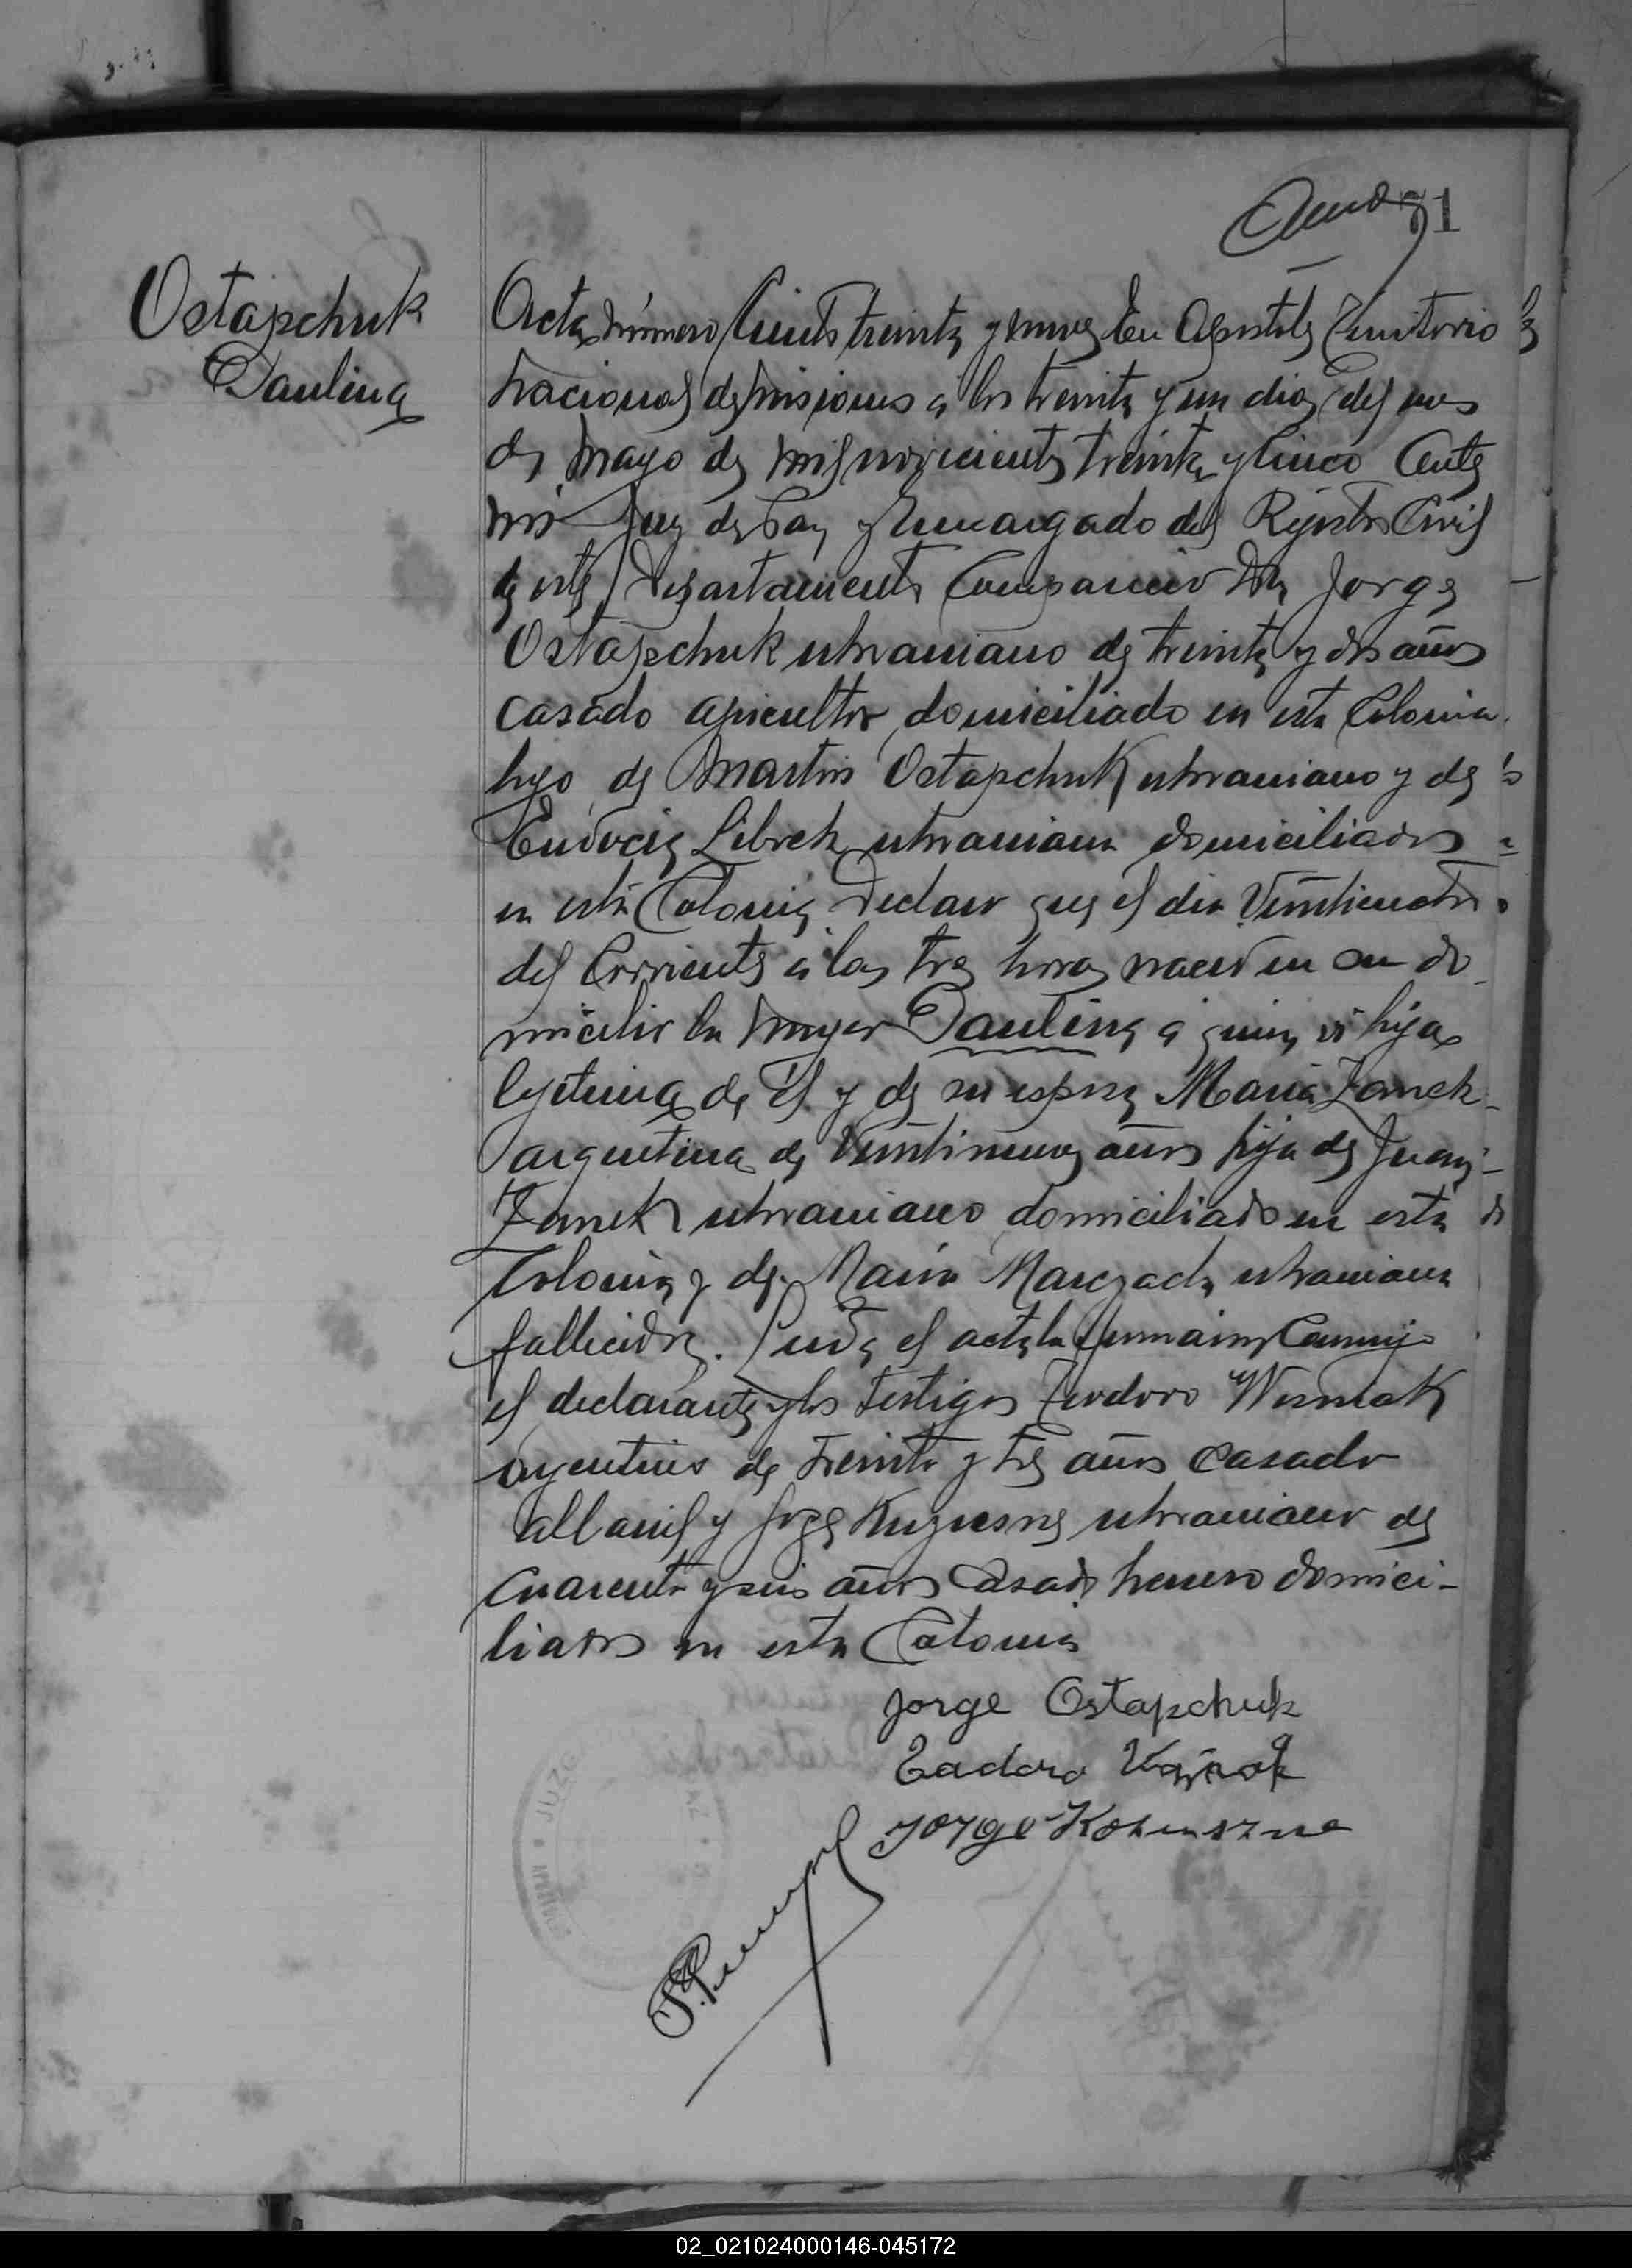 71
Ostapchuk
Paulina
Acta número Ciento treinta y nueve En Apostoles Territorio
Nacional de Misiones a los treinta y un dias del mes
de Mayo de mil novecientos treinta y cinco Ante
mi Juez de Paz y Encargado del Registro Civil
de este Departamento Comparecio Don Jorge
Ostapchuk ukraniano de treinta y dos años
casado apicultor domiciliado en esta Colonia
hijo de Martin Ostapchuk ukraniano y de
Eudocia ukraniana domiciliados
en esta Colonia Declaro que el dia Veinticuatro
del Corriente a las tres horas nacio en su do-
micilio la mujer Paulina a quien vi hija
legitima de El y de su esposa Maria Zanek
argentina de Veintinueve años hija de Juan
Zanek ukraniano domiciliado en esta
Colonia y de Maria ukraniana
fallecida. Leida el acta la firmaron Conmigo
el declarante y los testigos Teodoro Wosniak
argentino de treinta y tres años casado
albanil y Jorge ukraniano de
cuarenta y seis años Casado herrero domici-
liados en esta Colonia
Jorge Ostapchuk
Jorge
JUZG
PAZ
APOSTOLES
02_021024000146-045172